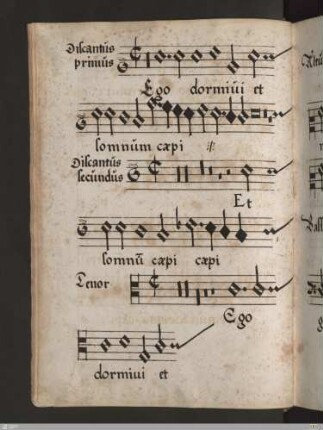 Discantus
primus
Ego dormiui et
somnum cæpi :||:
Discantus
secundus
Et
somnū cæpi cæpi
Tenor
Ego
dormiui et